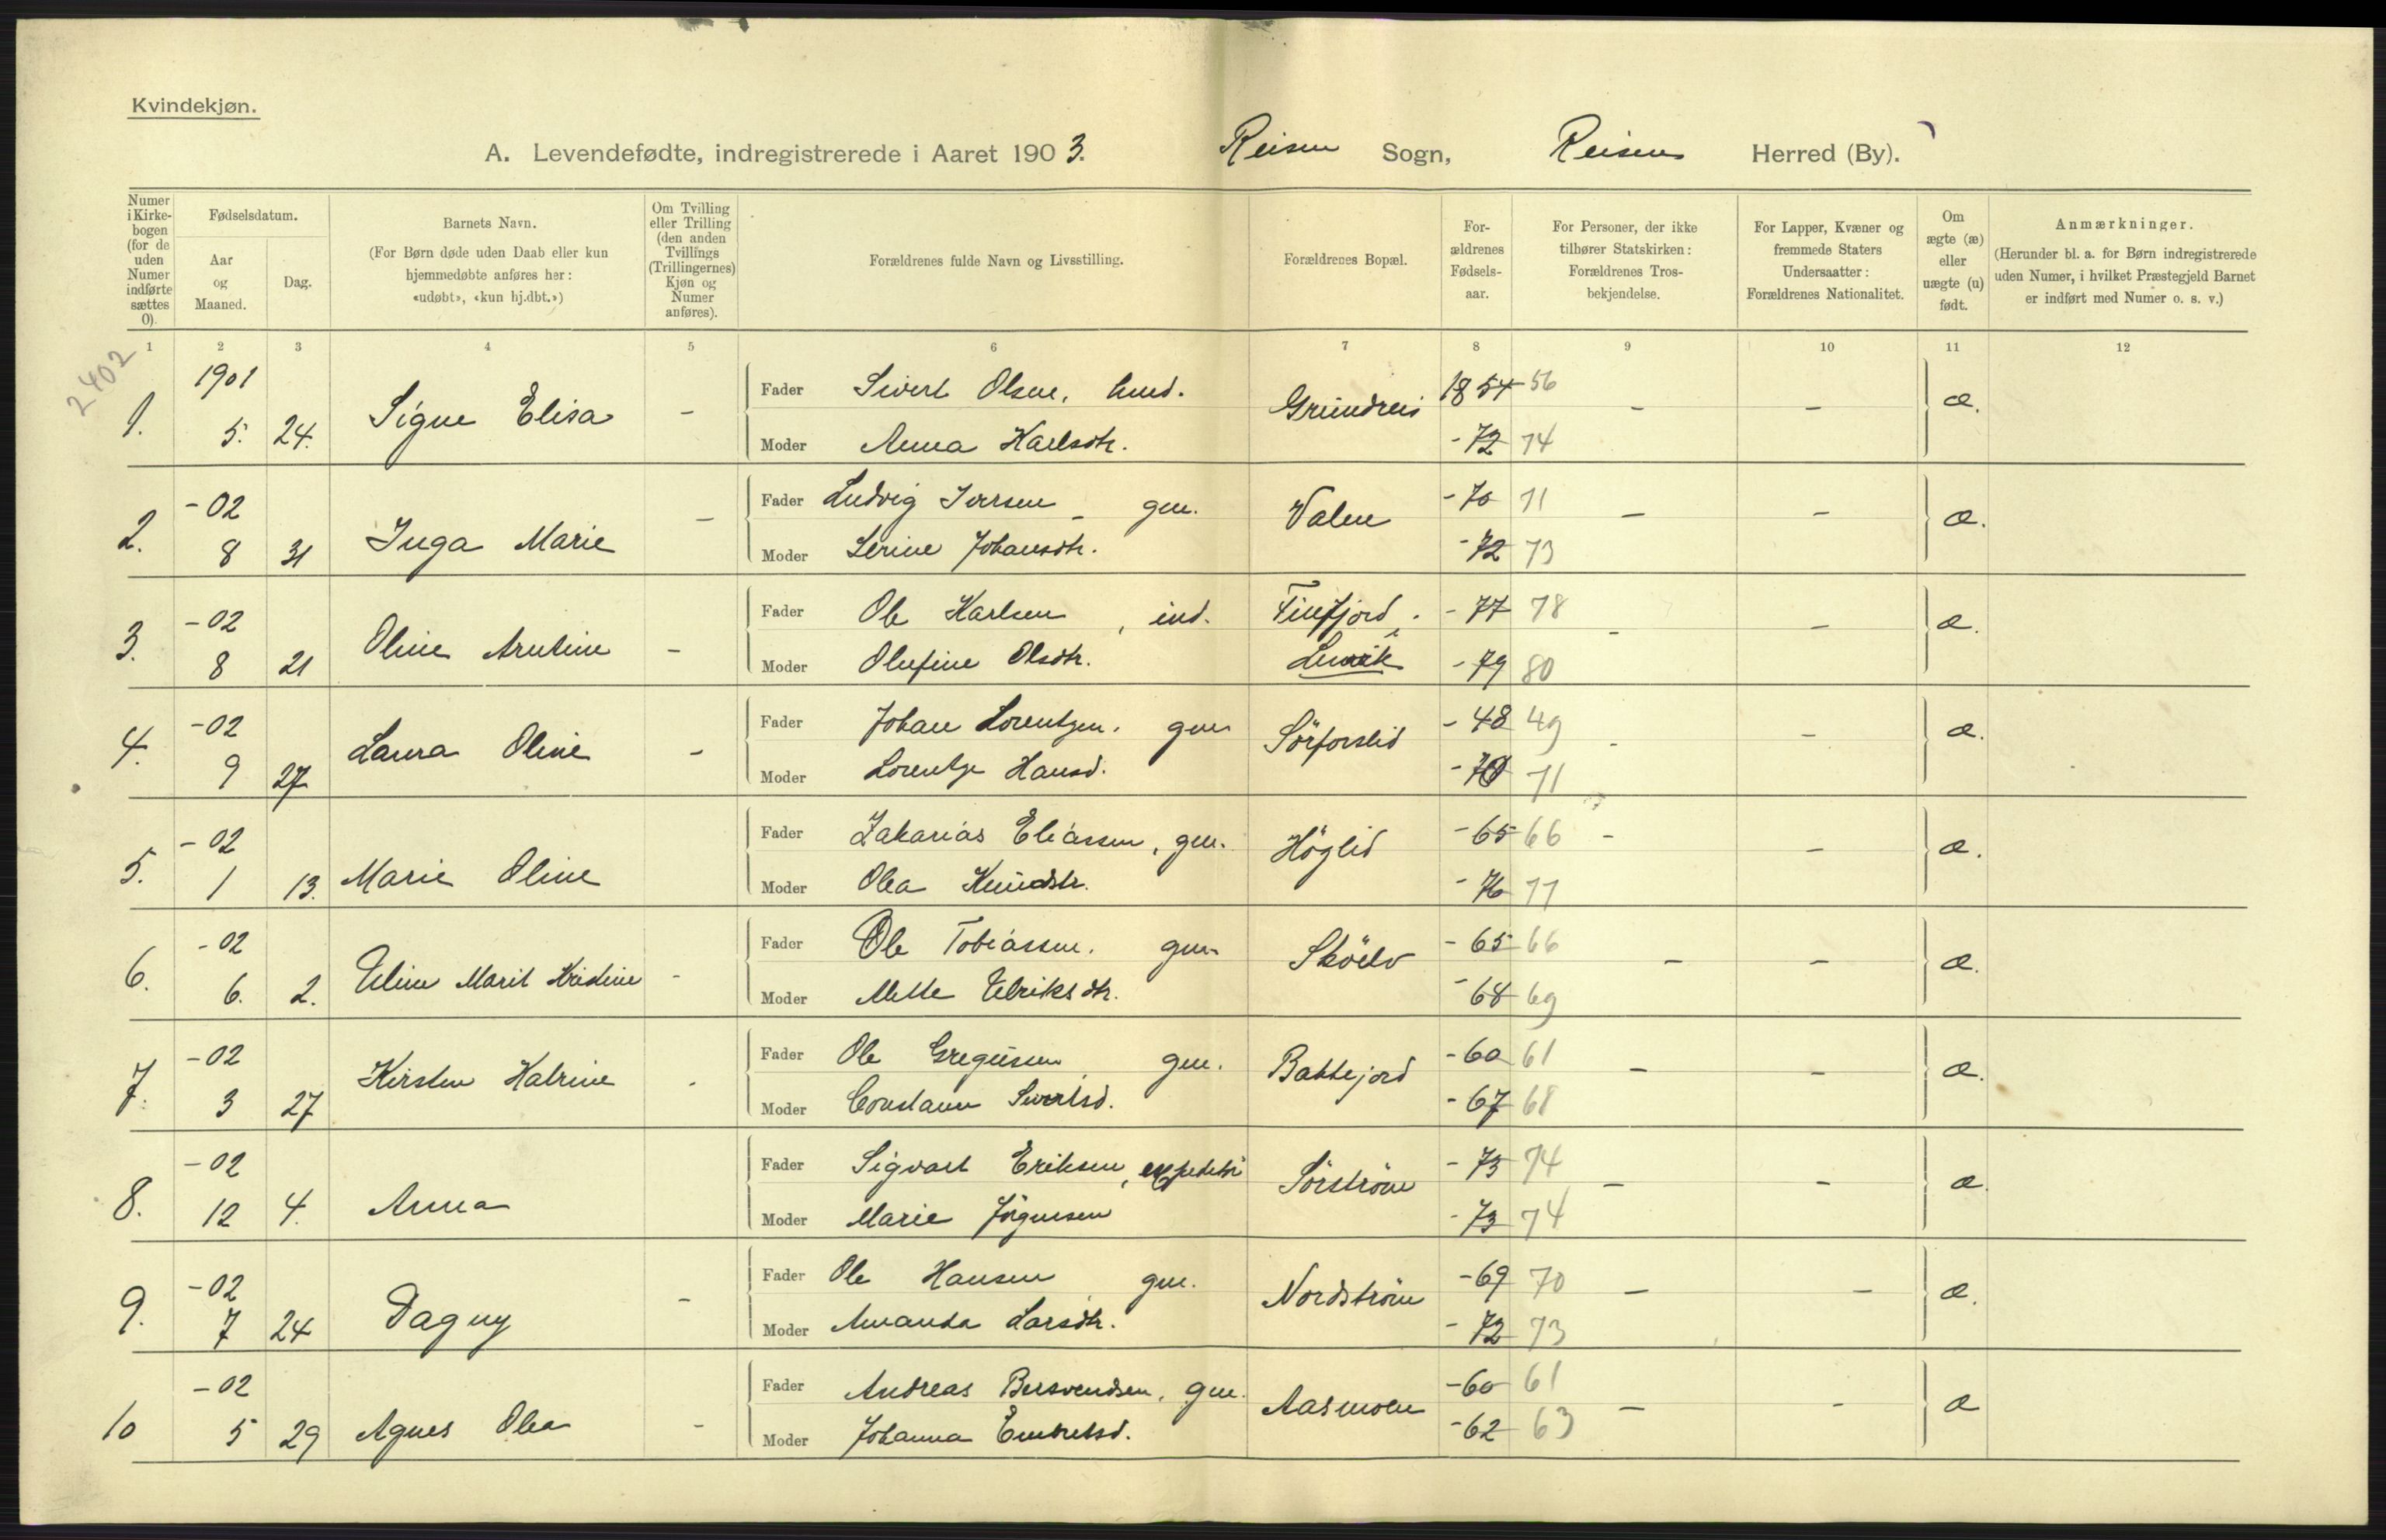 Kvindekjøn.
A. Levendefødte, indregistrerede i Aaret 1903. Reisen Sogn, Reisen Herred (By).
Numer i Kirkebogen (for de uden Numer indførte sættes 0).
Fødselsdatum.
Aar og Maaned.
Dag.
Barnets Navn.
(For Børn døde uden Daab eller kun hjemmedøbte anføres her: «udøbt», «kun hj.dbt.»)
Om Tvilling eller Trilling (den anden Tvillings (Trillingernes) Kjøn og Numer anføres).
Forældrenes fulde Navn og Livsstilling.
Forældrenes Bopæl.
Forældrenes Fødselsaar.
For Personer, der ikke tilhører Statskirken: Forældrenes Trosbekjendelse.
For Lapper, Kvæner og fremmede Staters Undersaatter: Forældrenes Nationalitet.
Om ægte (æ) eller uægte (u) født.
Anmærkninger.
(Herunder bl. a. for Børn indregistrerede uden Numer, i hvilket Præstegjeld Barnet er indført med Numer o. s. v.)
1 2 3 4 5 6 7 8 9 10 11 12
2402
1901
1. 5. 24. Signe Elisa - Fader Sivert Olsen, Grundreis 1854 56 - - æ.
Moder Anna Karlsdtr. -72 74
-02
2. 8 31 Inga Marie - Fader Ludvig Iversen - gm. Valen -70 71 - - æ.
Moder Serine Johansdtr. -72 73
-02
3. 8 21 Oline - Fader Ole Karlsen, ind. Finfjord, -77 78 - - æ.
Moder Olufine Olsdtr. Lenvik -79 80
-02
4. 9 27 Laura Oline - Fader Johan Lorentzen. gm Sörforslid -48 49 - - æ.
Moder Lorentze Hansd. -70 71
-02
5. 1 13. Marie Oline Fader Zakarias Eliassen, gm. Höglid -65 66 - - æ.
Moder Olea Knudsdtr. -76 77
-02
6. 6. 2. Marit Kristine - Fader Ole Tobiassen. gm. Sköelv -65 66 - - æ.
Moder Mette Ulriksdtr. -68 69
-02
7. 3 27 Kirsten Katrine - Fader Ole Gregusen gm. Bakkejord -60 61 - - æ.
Moder Constanse Sivertsd. -67 68
-02
8. 12 4. Anna Fader Sigvart Eriksen, Sörström -73 74 - - æ.
Moder Marie Jörgensen -73 74
-02
9. 7 24 Dagny - Fader Ole Hansen gm. Nordström -69 70 - - æ.
Moder Amanda Larsdtr. -72 73
-02
10 5 29 Agnes Olea - Fader Andreas Bersvendsen, gm. Aasmoen -60 61 - - æ
Moder Johanna Embretsd. -62 63